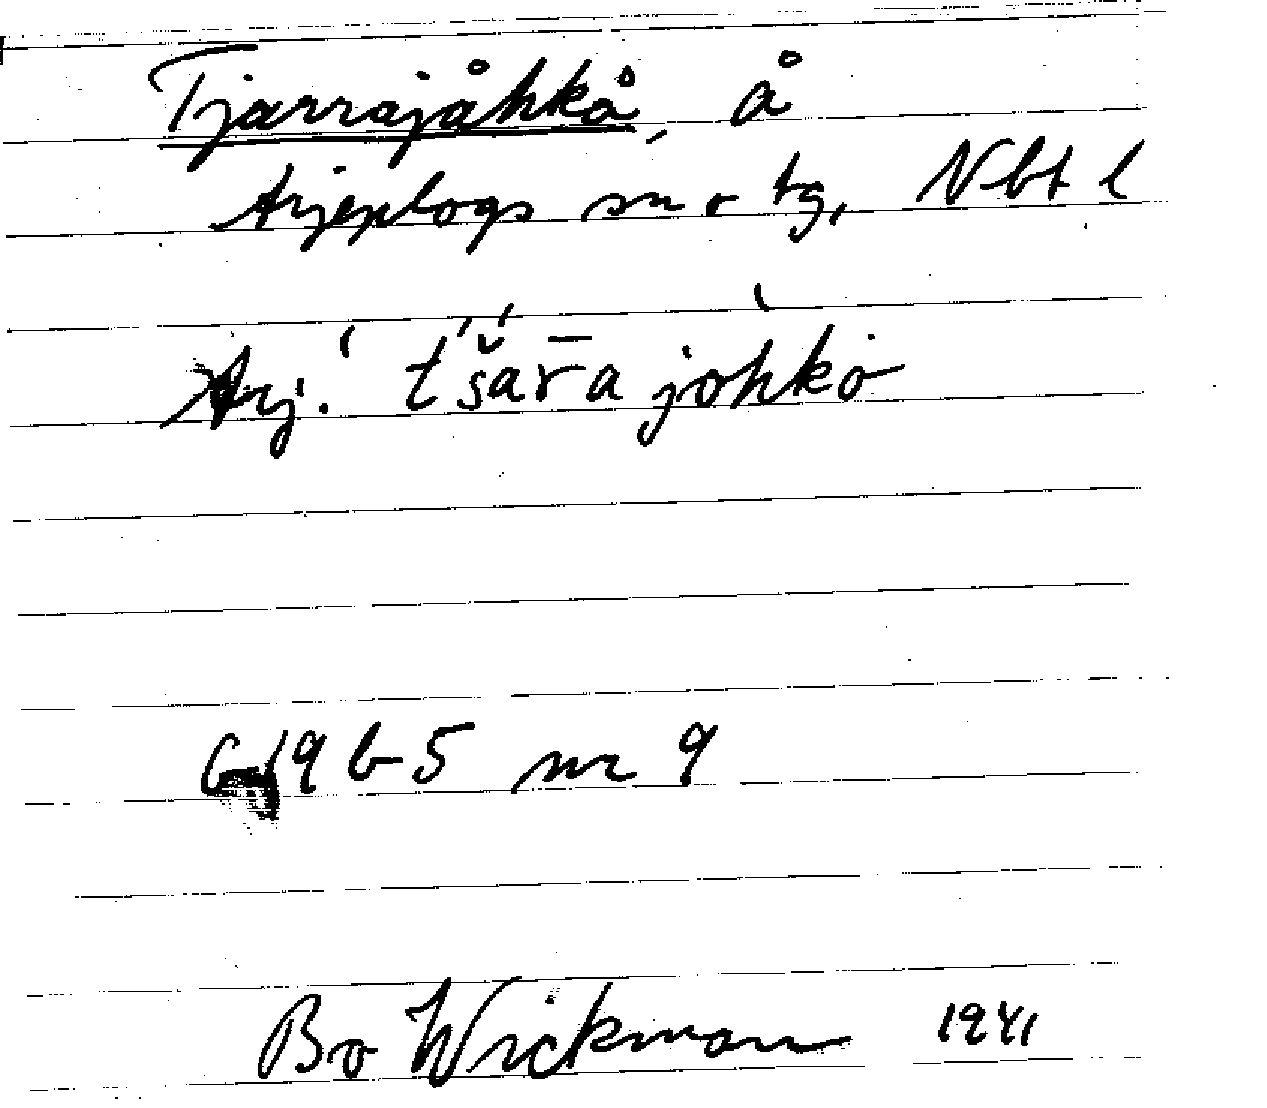 Tjarrajåhkå, å
Arjeplogs sn o tg, Nbt l
Arj. ˈt́š́ar̄a ˋjohko
G 19 b-5 nr 9
Bo Wickman 1941